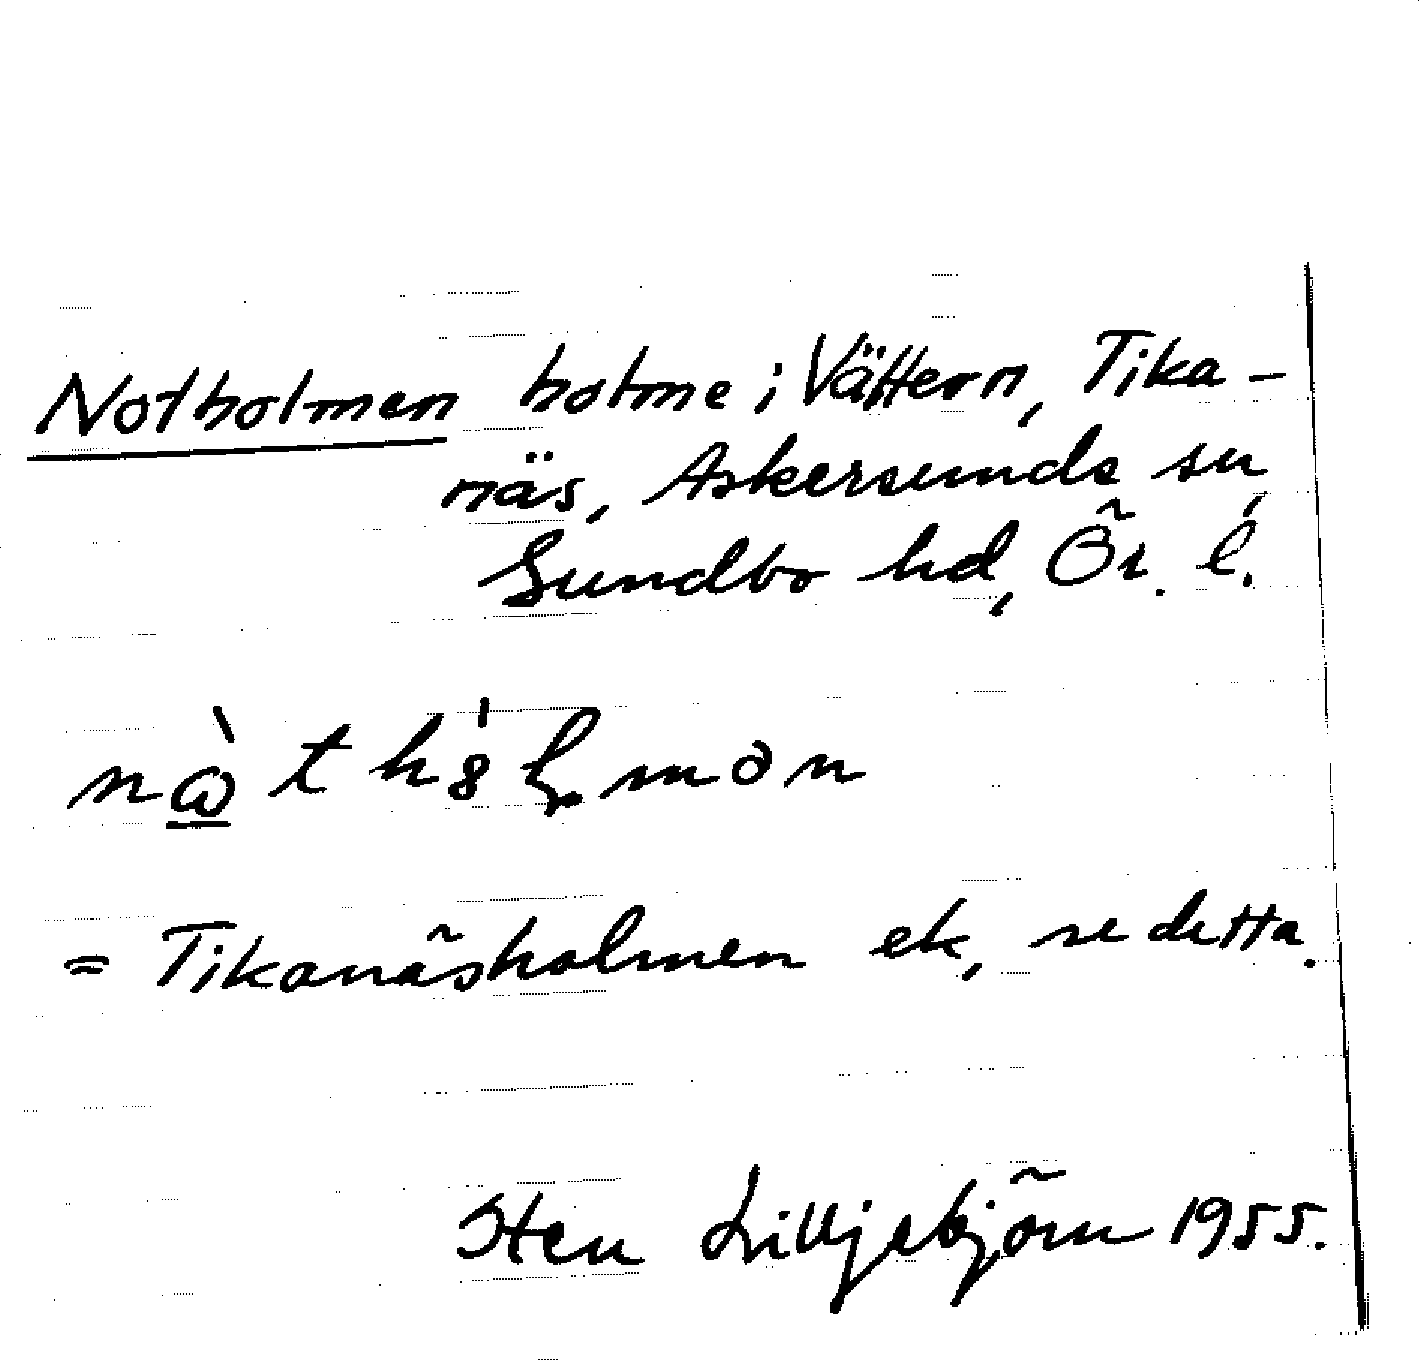 Notholmen holme i Vättern, Tika-
näs, Askersunds sn,
Sundbo hd, Ör. l.
= Tikanäsholmen ek, se detta.
Sten Lilljebjörn 1955.